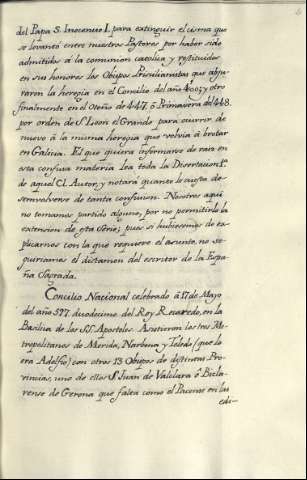 del Papa S. Inocencio I. para extinguir el cisma que
se levantó entre nuestros Pastores por haber sido
admitidos á la comunion catolica y restituidos
en sus honores los Obispos Priscilianistas que abju-
raron la heregia en el Concilio del año 400; y otro
finalmente en el Otoño de 447. ó Primavera del 448.
por orden de S.n Leon el Grande para ocurrir de
nuevo á la misma heregia que volvia á brotar
en Galicia. El que quiera informarse de raiz en
esta confusa materia lea toda la Disertacion
de aquel Cl. Autor, y notará quanto le cuesta de-
senvolverse de tanta confusion. Nosotros aqui
no tomamos partido alguno, por no permitirlo la
extension de esta Serie; pues si hubiesemos de ex-
plicarnos con la que requiere el asunto, no se-
guiriamos el dictamen del escritor de la Espa-
ña Sagrada.
Concilio Nacional celebrado á 17 de Mayo
del año 597. duodecimo del Rey Recaredo, en la
Basilica de los SS. Apostoles. Asistieron los tres Me-
tropolitanos de Merida, Narbona y Toledo (que lo
era Adelfio) con otros 13 Obispos de distintas Pro-
vincias, uno de ellos S.n Juan de Valclara ó Bicla-
rense de Gerona que falta como el Pacense en las
edi-